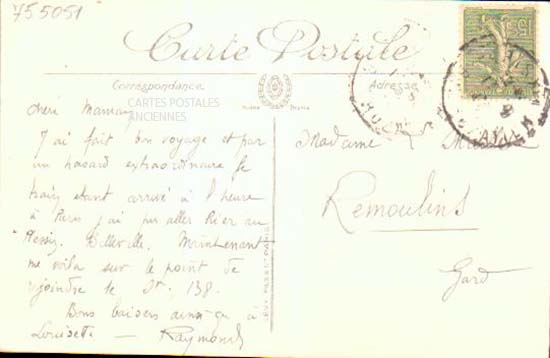 755051
Carte Postale
Correspondance
Adresse
CARTES POSTALES
ANCIENNES
Chère Maman
J'ai fait bon voyage et par
un hasard extraordinaire le
train étant arrivé à l'heure
à Paris j'ai pu aller hier au
Plessis. Belleville. Maintenant
me voila sur le point de
rejoindre le Dr. 138.
Bons baisers ainsi qu'à
Louisette — Raymond
Madame
Remoulins
Gard
15c